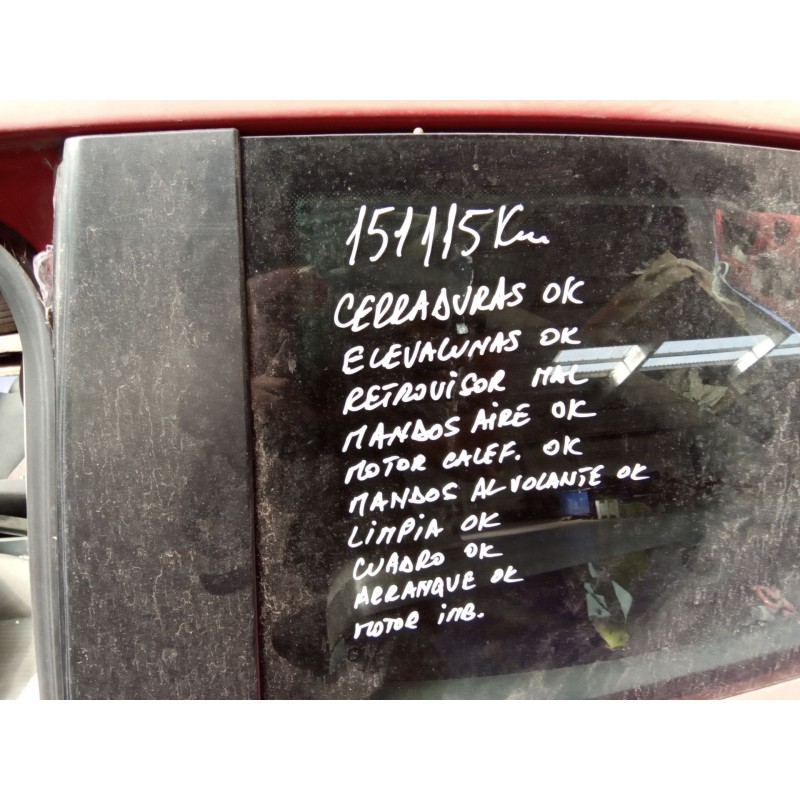 151115 Km
CERRADURAS OK
ELEVALUNAS OK
RETROVISOR MAL
MANDOS AIRE OK
MOTOR CALEF. OK
MANDOS AL VOLANTE OK
LIMPIA OK
CUADRO OK
ARRANQUE OK
MOTOR INB.